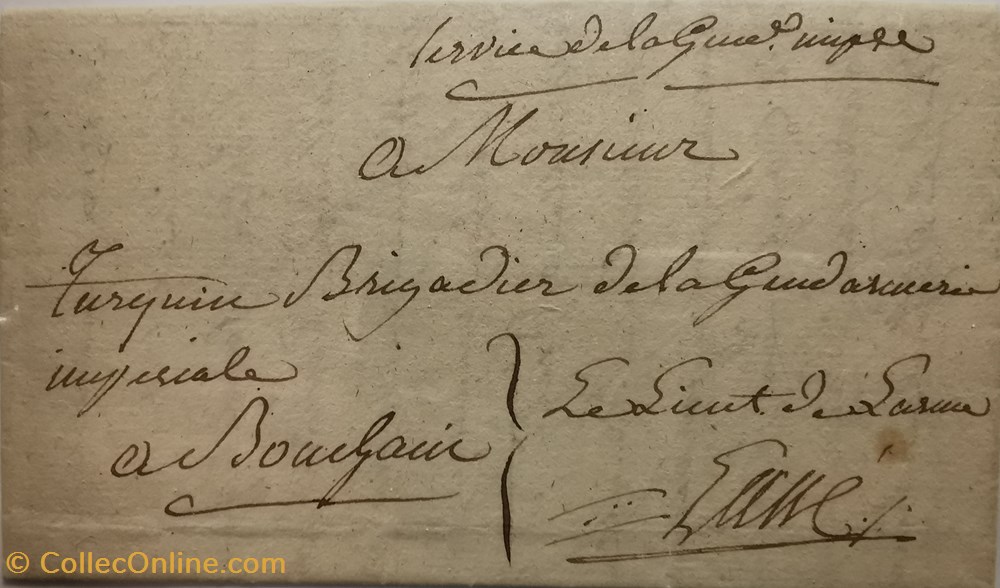 service de la Gme. impre
a Monsieur
Turquin Brigadier de la Gendarmerie
imperiale
a Bouchain
Le Lieut. de L'arme
© CollecOnline.com